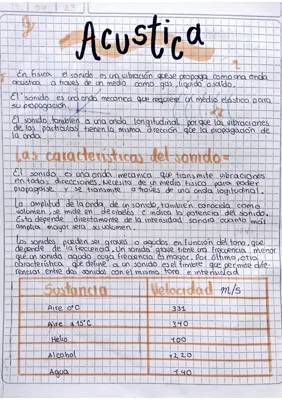 Acustica
En física el sonido es una vibración que se propaga como una onda
acustica a través de un medio como gas, líquido o sólido.
El sonido es una onda mecanica que requiere un medio elástico para
su propagación.
El sonido también es una onda longitudinal porque las vibraciones
de las partículas tienen la misma dirección que la propagación de
la onda.
Las características del sonido=
El sonido es una onda mecanica que transmite vibraciones
en todas direcciones. Necesita de un medio físico para poder
propagarse y se transmite a través de una onda longitudinal.
La amplitud de la onda, de un sonido, también conocida como
volumen, se mide en decibeles e indica la potencia del sonido.
Esta depende directamente de la intensidad sonora cuanto más
amplia mayor será su volumen.
Los sonidos pueden ser graves o agudos en función del tono, que
depende de la frecuencia. Un sonido grave tiene una frecuencia menor
que un sonido agudo cuya frecuencia es mayor. Por último, otra
característica que define a un sonido es el timbre que permite dife-
renciar entre dos sonidos con el mismo tono e intensidad
Sustancia Velocidad m/s
Aire 0°C 331
Aire a 15°C 340
Helio
Alcohol
Agua